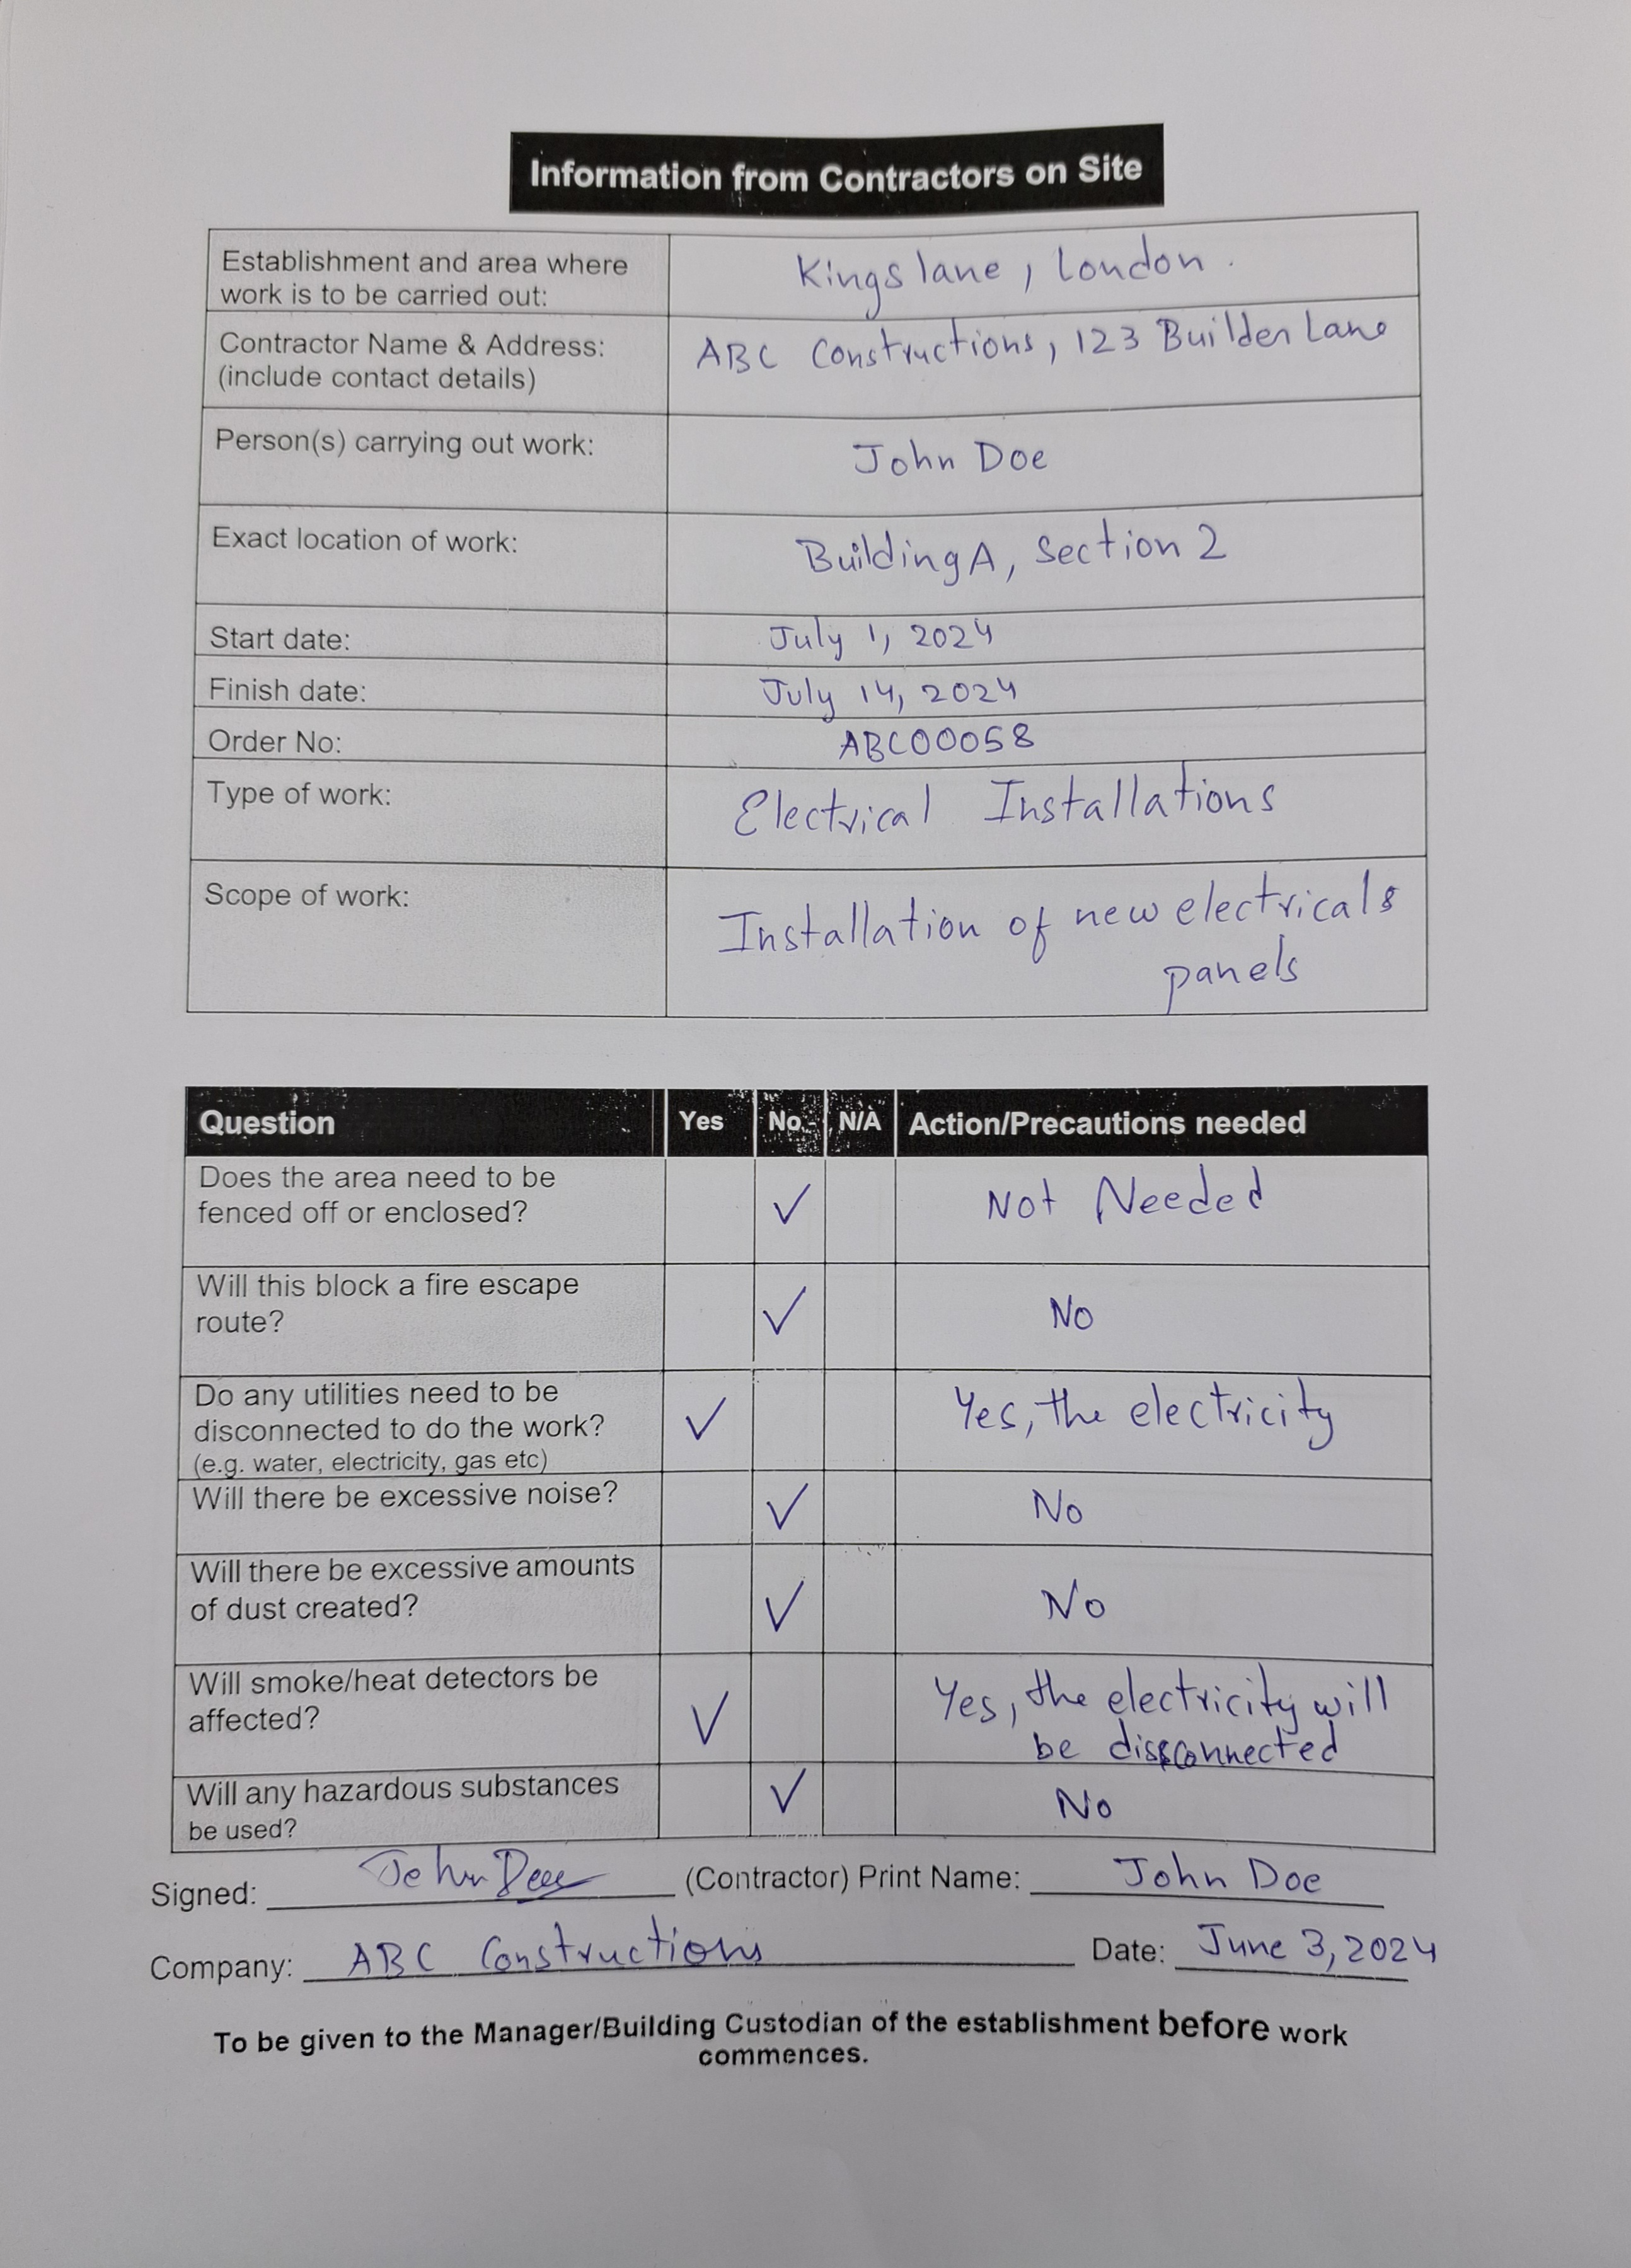 Information from Contractors on Site
Establishment and area where
work is to be carried out:
Kings lane, London.
Contractor Name & Address:
(include contact details)
ABC Constructions, 123 Builder Lane
Person(s) carrying out work:
John Doe
Exact location of work:
Building A, Section 2
Start date:
July 1, 2024
Finish date:
July 14, 2024
Order No:
ABC00058
Type of work:
Electrical Installations
Scope of work:
Installation of new electricals
panels
Question Yes No N/A Action/Precautions needed
Does the area need to be
fenced off or enclosed?
✓ Not Needed
Will this block a fire escape
route?
✓ No
Do any utilities need to be
disconnected to do the work?
(e.g. water, electricity, gas etc)
✓ Yes, the electricity
Will there be excessive noise?
✓ No
Will there be excessive amounts
of dust created?
✓ No
Will smoke/heat detectors be
affected?
✓ Yes, the electricity will
be disconnected
Will any hazardous substances
be used?
✓ No
Signed: John Doe (Contractor) Print Name: John Doe
Company: ABC Constructions Date: June 3, 2024
To be given to the Manager/Building Custodian of the establishment before work
commences.